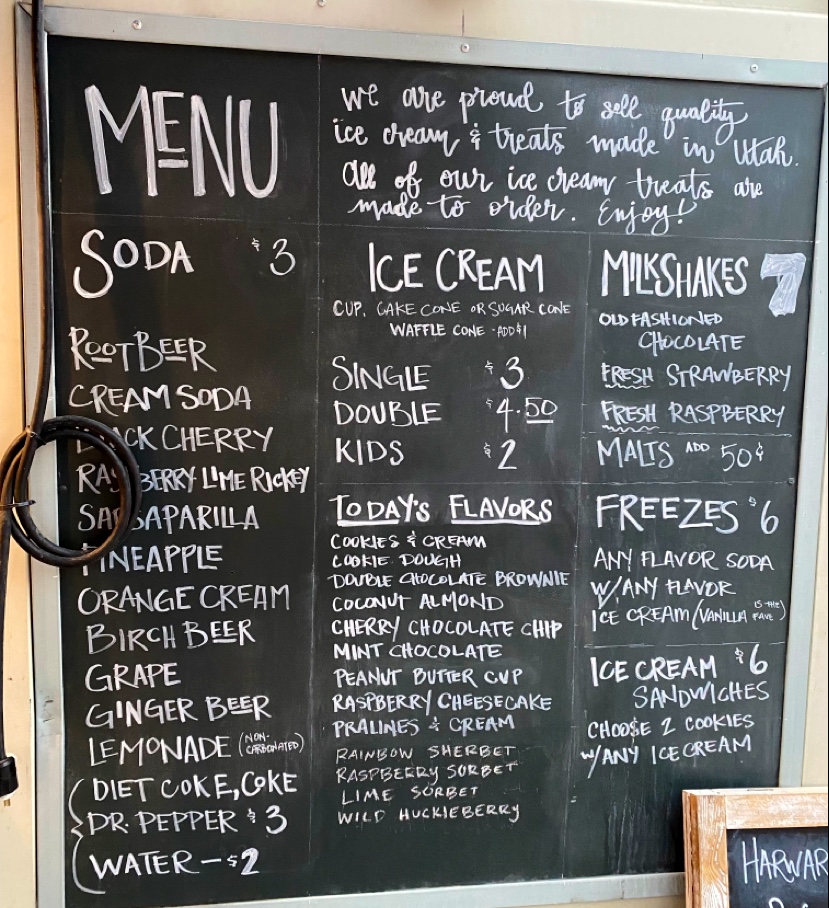 MENU
We are proud to sell quality
ice cream & treats made in Utah.
All of our ice cream treats are
made to order. Enjoy!
SODA $3
ROOT BEER
CREAM SODA
BLACK CHERRY
RASPBERRY LIME RICKEY
SARSAPARILLA
PINEAPPLE
ORANGE CREAM
BIRCH BEER
GRAPE
GINGER BEER
LEMONADE (NON-CARBONATED)
DIET COKE, COKE
DR. PEPPER $3
WATER - $2
ICE CREAM
CUP, CAKE CONE OR SUGAR CONE
WAFFLE CONE - ADD $1
SINGLE $3
DOUBLE $4.50
KIDS $2
TODAY'S FLAVORS
COOKIES & CREAM
COOKIE DOUGH
DOUBLE CHOCOLATE BROWNIE
COCONUT ALMOND
CHERRY CHOCOLATE CHIP
MINT CHOCOLATE
PEANUT BUTTER CUP
RASPBERRY CHEESECAKE
PRALINES & CREAM
RAINBOW SHERBET
RASPBERRY SORBET
LIME SORBET
WILD HUCKLEBERRY
MILKSHAKES 7
OLD FASHIONED
CHOCOLATE
FRESH STRAWBERRY
FRESH RASPBERRY
MALTS ADD 50¢
FREEZES $6
ANY FLAVOR SODA
W/ANY FLAVOR
ICE CREAM (VANILLA IS THE FAVE)
ICE CREAM $6
SANDWICHES
CHOOSE 2 COOKIES
W/ANY ICE CREAM
HARWAR